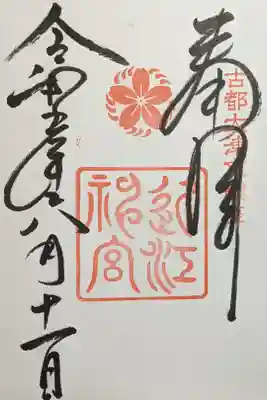 奉拝
古都大津
近江
神宮
令和五年八月十一日